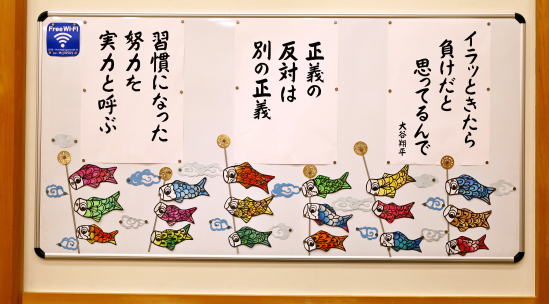 イラッときたら
負けだと
思ってるんで
大谷翔平
正義の
反対は
別の正義
習慣になった
努力を
実力と呼ぶ
Free Wi-Fi